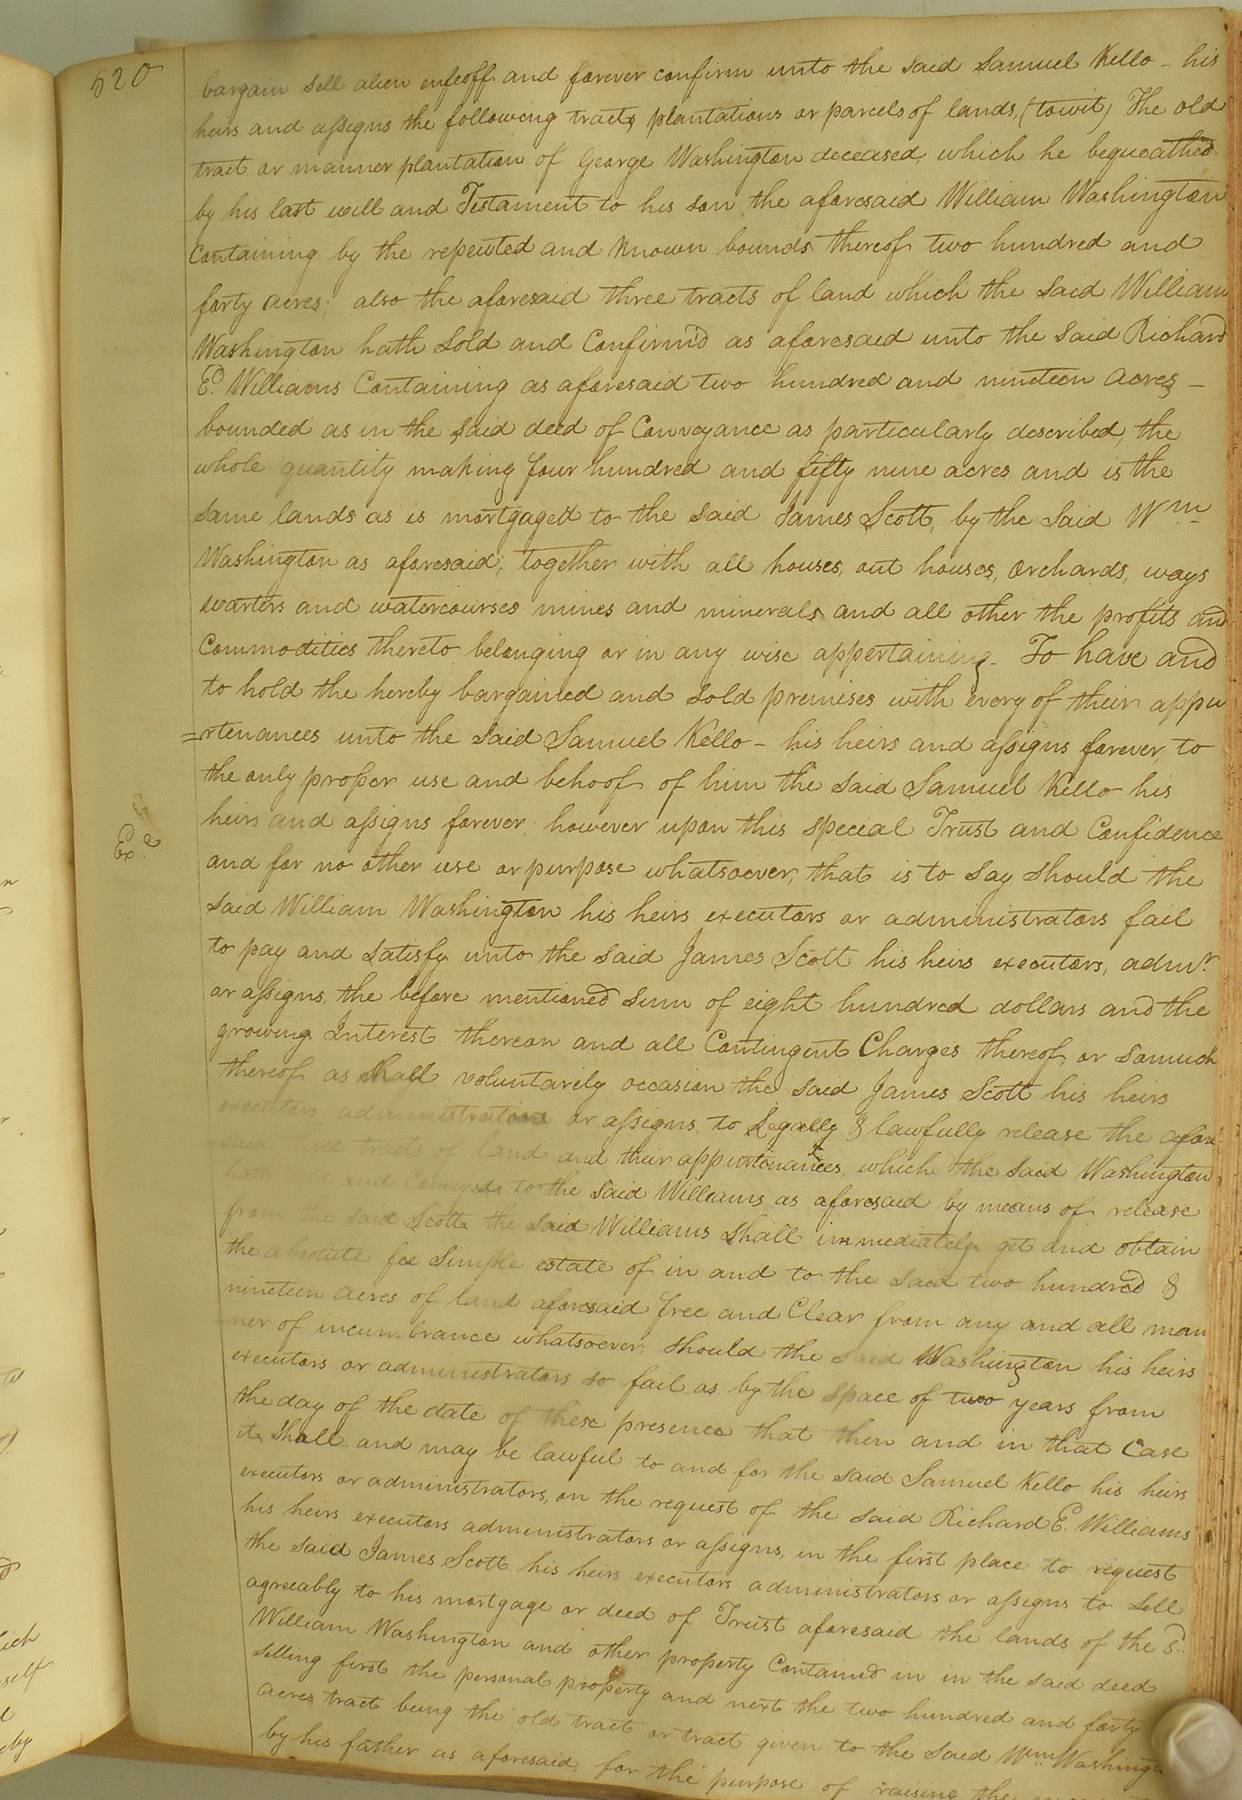 520
bargain sell alien enfeoff and forever confirm unto the said Samuel Kello - his
heirs and assigns the following tracts plantations or parcels of lands, (towit) The old
tract or manner plantation of George Washington deceased, which he bequeathed
by his last will and Testament to his son the aforesaid William Washington
Containing by the repeuted and known bounds thereof two hundred and
forty acres; also the aforesaid three tracts of land which the said William
Washington hath Sold and Confirm'd as aforesaid unto the said Richard
Ed. Williams Containing as aforesaid two hundred and nineteen acres -
bounded as in the said deed of Conveyance as particularly described, the
whole quantity making four hundred and fifty nine acres, and is the
same lands as is mortgaged to the said James Scott, by the said Wm
Washington as aforesaid; together with all houses, out houses, orchards, ways
warters and watercourses mines and minerals and all other the profits and
Commodities thereto belonging or in any wise appertaining. To have and
to hold the hereby bargained and sold premises with every of their appu
=rtenances unto the said Samuel Kello - his heirs and assigns forever, to
the only proper use and behoof of him the said Samuel Kello his
heirs and assigns forever, however upon this special Trust and Confidence
Exe.
and for no other use or purpose whatsoever, that is to say should the
said William Washington his heirs executors or administrators fail
to pay and satisfy unto the said James Scott his heirs executors, admr
or assigns, the before mentioned sum of eight hundred dollars and the
growing Interest thereon and all Contingent Charges thereof, or somuch
thereof as shall voluntarily occasion the said James Scott his heirs
executors, administrators or assigns, to Legally & lawfully release the afore
said three tracts of land and their appurtenances, which the said Washington
hath and Conveyed to the said Williams as aforesaid by means of release
from the said Scott the said Williams shall immediately get and obtain
the absolute fee simple estate of in and to the said two hundred &
nineteen acres of land aforesaid free and Clear from any and all man
ner of incumbrance whatsoever, should the said Washington his heirs
executors or administrators so fail as by the space of two years from
the day of the date of these presence that then and in that Case
it shall and may be lawful to and for the said Samuel Kello his heirs
executors or administrators, on the request of the said Richard E. Williams
his heirs executors administrators or assigns, in the first place to request
the said James Scott his heirs executors administrators or assigns to sell
agreeably to his mortgage or deed of Trust aforesaid the lands of the sd.
William Washington and other property Contained in in the said deed
selling first the personal property and next the two hundred and forty
acres tract being the old tract or tract given to the said Wm Washingt
by his father as aforesaid, for the purpose of raising the